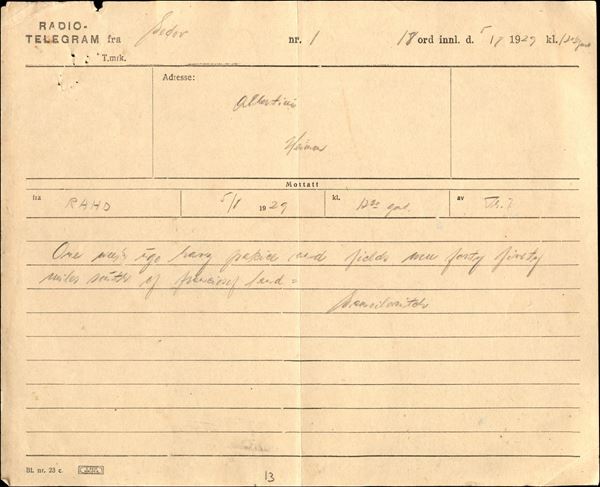 RADIO-
TELEGRAM fra Sedov nr. 1 18 ord innl. d. 5/8 1929 kl.
T.mrk.
Adresse:
Albertini
Heimen
Mottatt
fra RAHD 5/8 1929 kl. 12 00 av Th. J.
One week ago heavy packice and fields were forty fivety
miles south of land =
Bl. nr. 23 c.
13